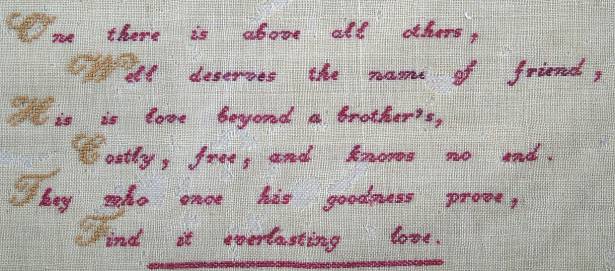 One there is above all others,
Well deserves the name of friend,
His is love beyond a brother's,
Costly, free, and knows no end.
They who once his goodness prove,
Find it everlasting love.